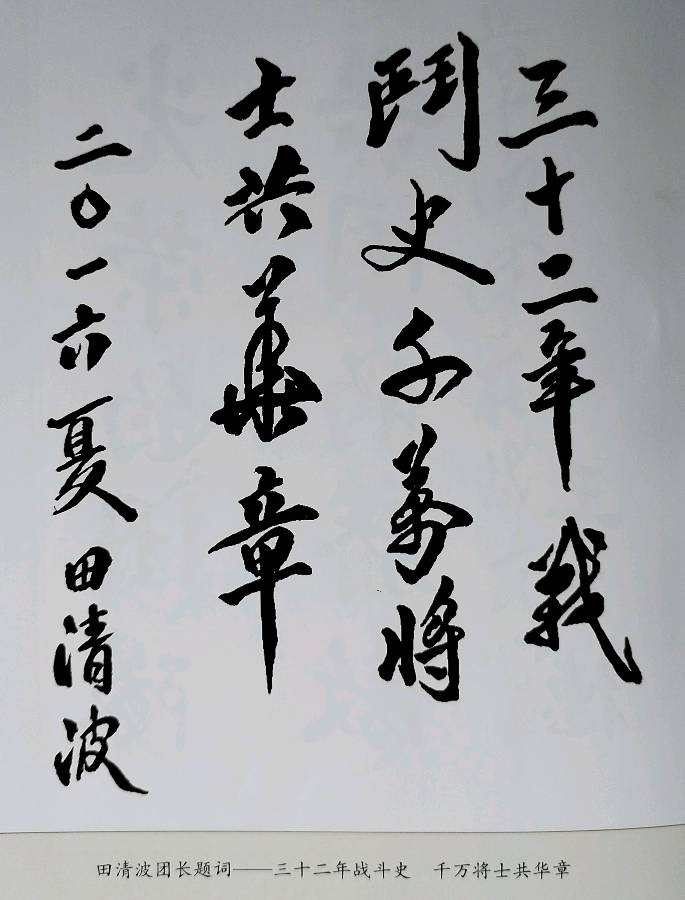 三十二年戰
鬥史千萬將
士共華章
二〇一六夏田清波
田清波团长题词——三十二年战斗史 千万将士共华章